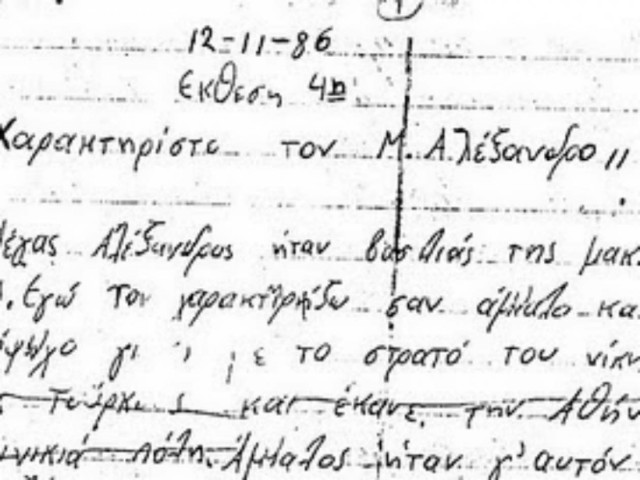 1
12-11-86
Έκθεση 4η
Χαρακτηρίστε τον Μ. Αλέξανδρο "
έγας Αλέξανδρος ήταν βασιλιάς της μακ
Εγώ τον χαρακτηρίζω σαν άμιαλο κα
όψυχο γι ε το στρατό του νίκη
και έκανε την Αθήν
πόλη. Άμιαλος ήταν γι' αυτόν